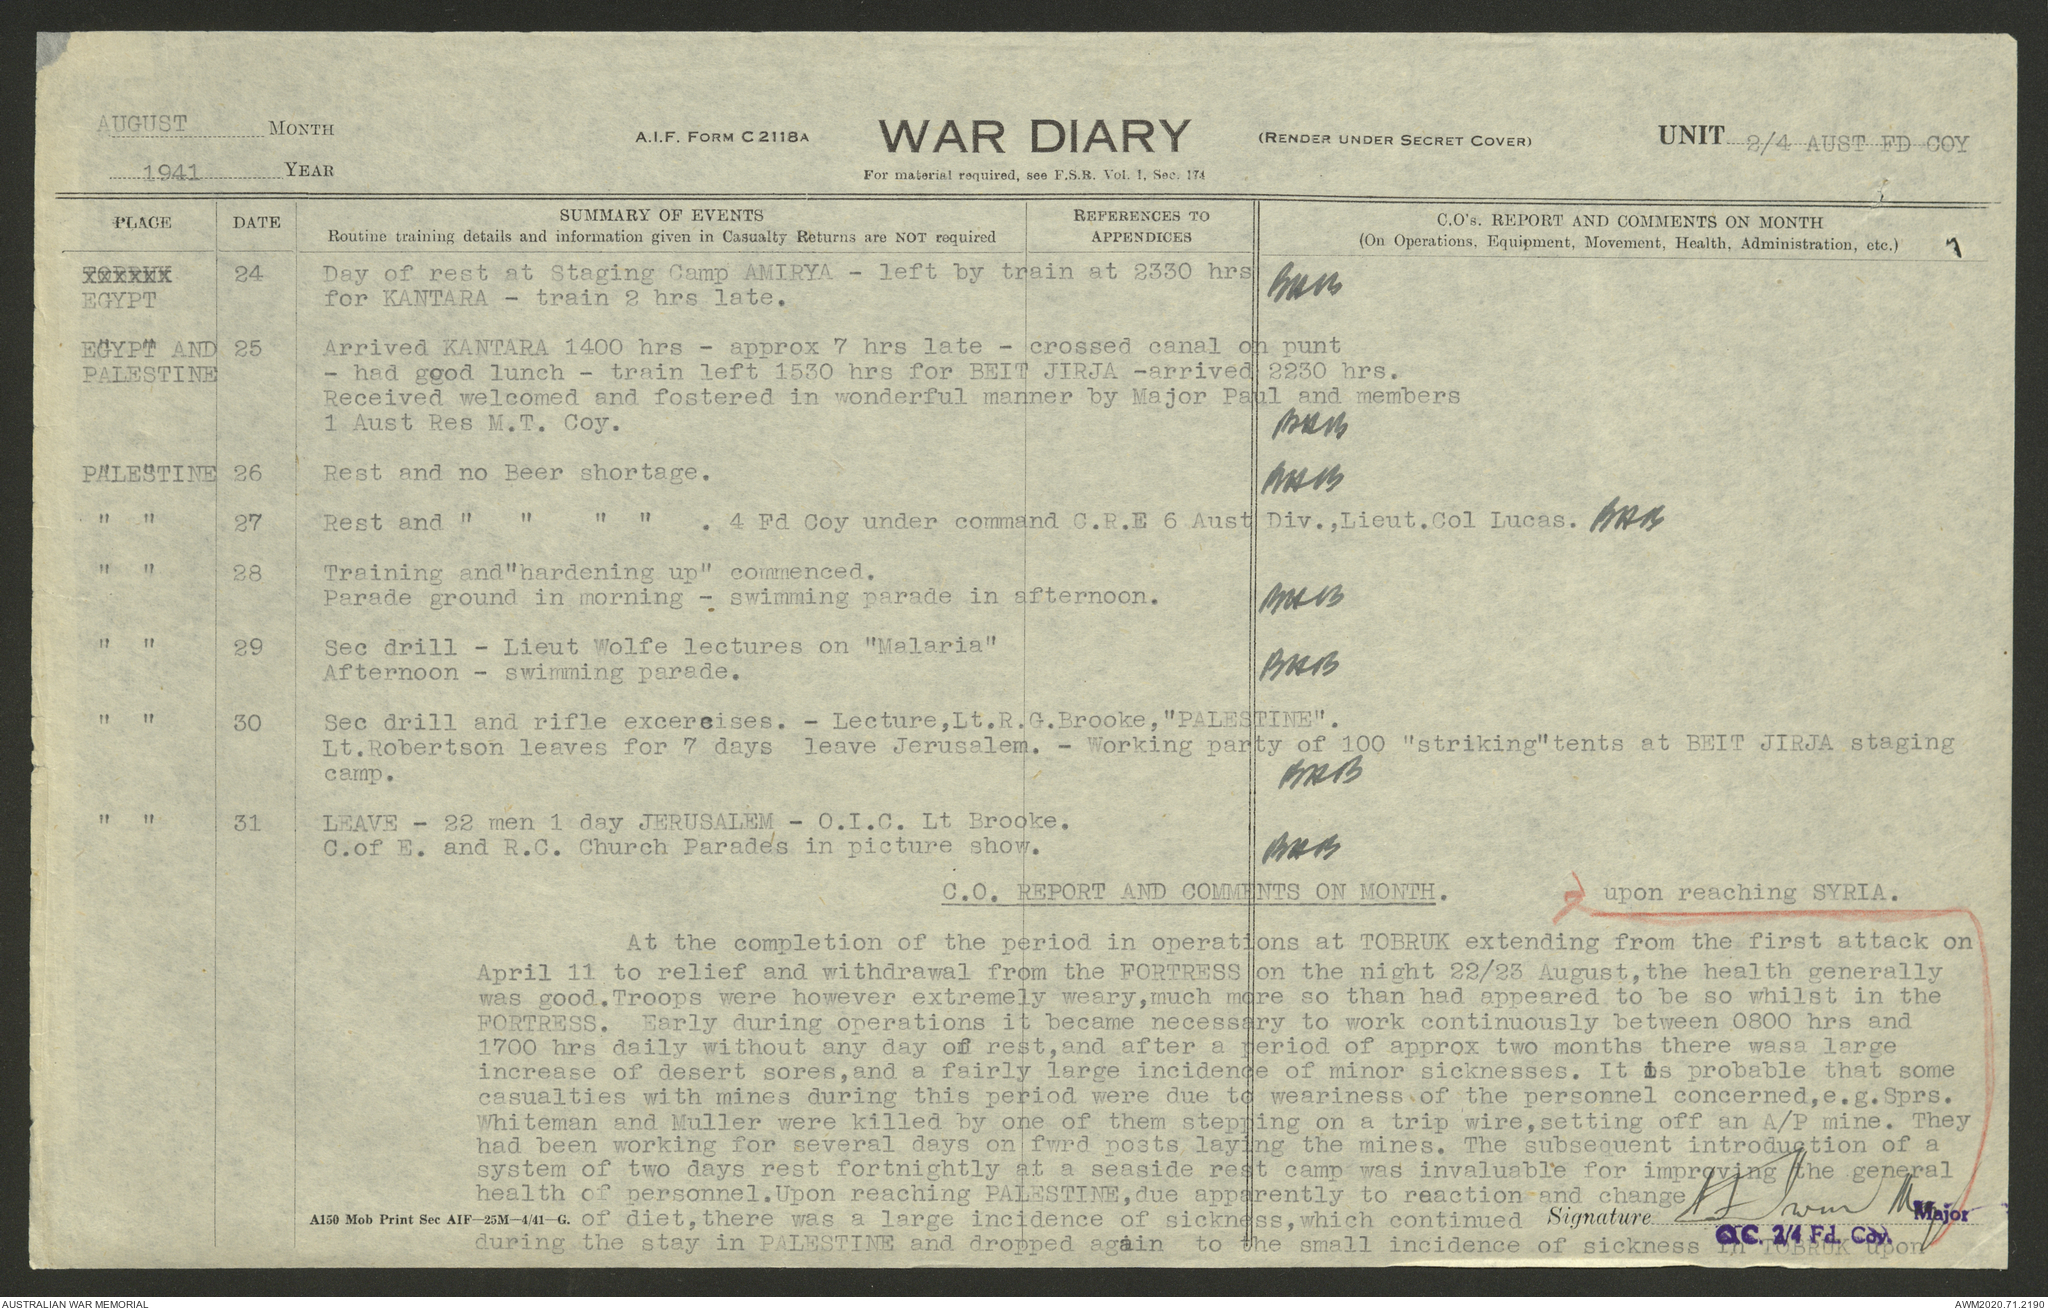 AUGUST MONTH
1941 YEAR
A.I.F. FORM C2118A
WAR DIARY
(RENDER UNDER SECRET COVER)
For material required, see F.S.R. Vol. 1, Sec. 174
UNIT 2/4 AUST FD COY
PLACE
DATE
SUMMARY OF EVENTS
Routine training details and information given in Casualty Returns are NOT required
REFERENCES TO
APPENDICES
C.O's. REPORT AND COMMENTS ON MONTH
(On Operations, Equipment, Movement, Health, Administration, etc.) 7
24 Day of rest at Staging Camp AMIRYA - left by train at 2330 hrs
EGYPT for KANTARA - train 2 hrs late.
EGYPT AND 25 Arrived KANTARA 1400 hrs - approx 7 hrs late - crossed canal on punt
PALESTINE - had good lunch - train left 1530 hrs for BEIT JIRJA -arrived 2230 hrs.
Received welcomed and fostered in wonderful manner by Major Paul and members
1 Aust Res M.T. Coy.
PALESTINE 26 Rest and no Beer shortage.
" " 27 Rest and " " " " . 4 Fd Coy under command C.R.E 6 Aust Div.,Lieut.Col Lucas.
" " 28 Training and"hardening up" commenced.
Parade ground in morning - swimming parade in afternoon.
" " 29 Sec drill - Lieut Wolfe lectures on "Malaria"
Afternoon - swimming parade.
" " 30 Sec drill and rifle excercises. - Lecture,Lt.R.G.Brooke,"PALESTINE".
Lt.Robertson leaves for 7 days leave Jerusalem. - Working party of 100 "striking"tents at BEIT JIRJA staging
camp.
" " 31 LEAVE - 22 men 1 day JERUSALEM - O.I.C. Lt Brooke.
C.of E. and R.C. Church Parades in picture show.
C.O. REPORT AND COMMENTS ON MONTH. upon reaching SYRIA.
At the completion of the period in operations at TOBRUK extending from the first attack on
April 11 to relief and withdrawal from the FORTRESS on the night 22/23 August,the health generally
was good.Troops were however extremely weary,much more so than had appeared to be so whilst in the
FORTRESS. Early during operations it became necessary to work continuously between 0800 hrs and
1700 hrs daily without any day of rest,and after a period of approx two months there wasa large
increase of desert sores,and a fairly large incidence of minor sicknesses. It is probable that some
casualties with mines during this period were due to weariness of the personnel concerned,e.g.Sprs.
Whiteman and Muller were killed by one of them stepping on a trip wire,setting off an A/P mine. They
had been working for several days on fwrd posts laying the mines. The subsequent introduction of a
system of two days rest fortnightly at a seaside rest camp was invaluable for improving the general
health of personnel.Upon reaching PALESTINE,due apparently to reaction and change
A150 Mob Print Sec AIF—25M—4/41—G. of diet,there was a large incidence of sickness,which continued Signature Major
during the stay in PALESTINE and dropped again to the small incidence of sickness in TOBRUK upon
O.C. 2/4 Fd. Coy.
AUSTRALIAN WAR MEMORIAL
AWM2020.71.2190